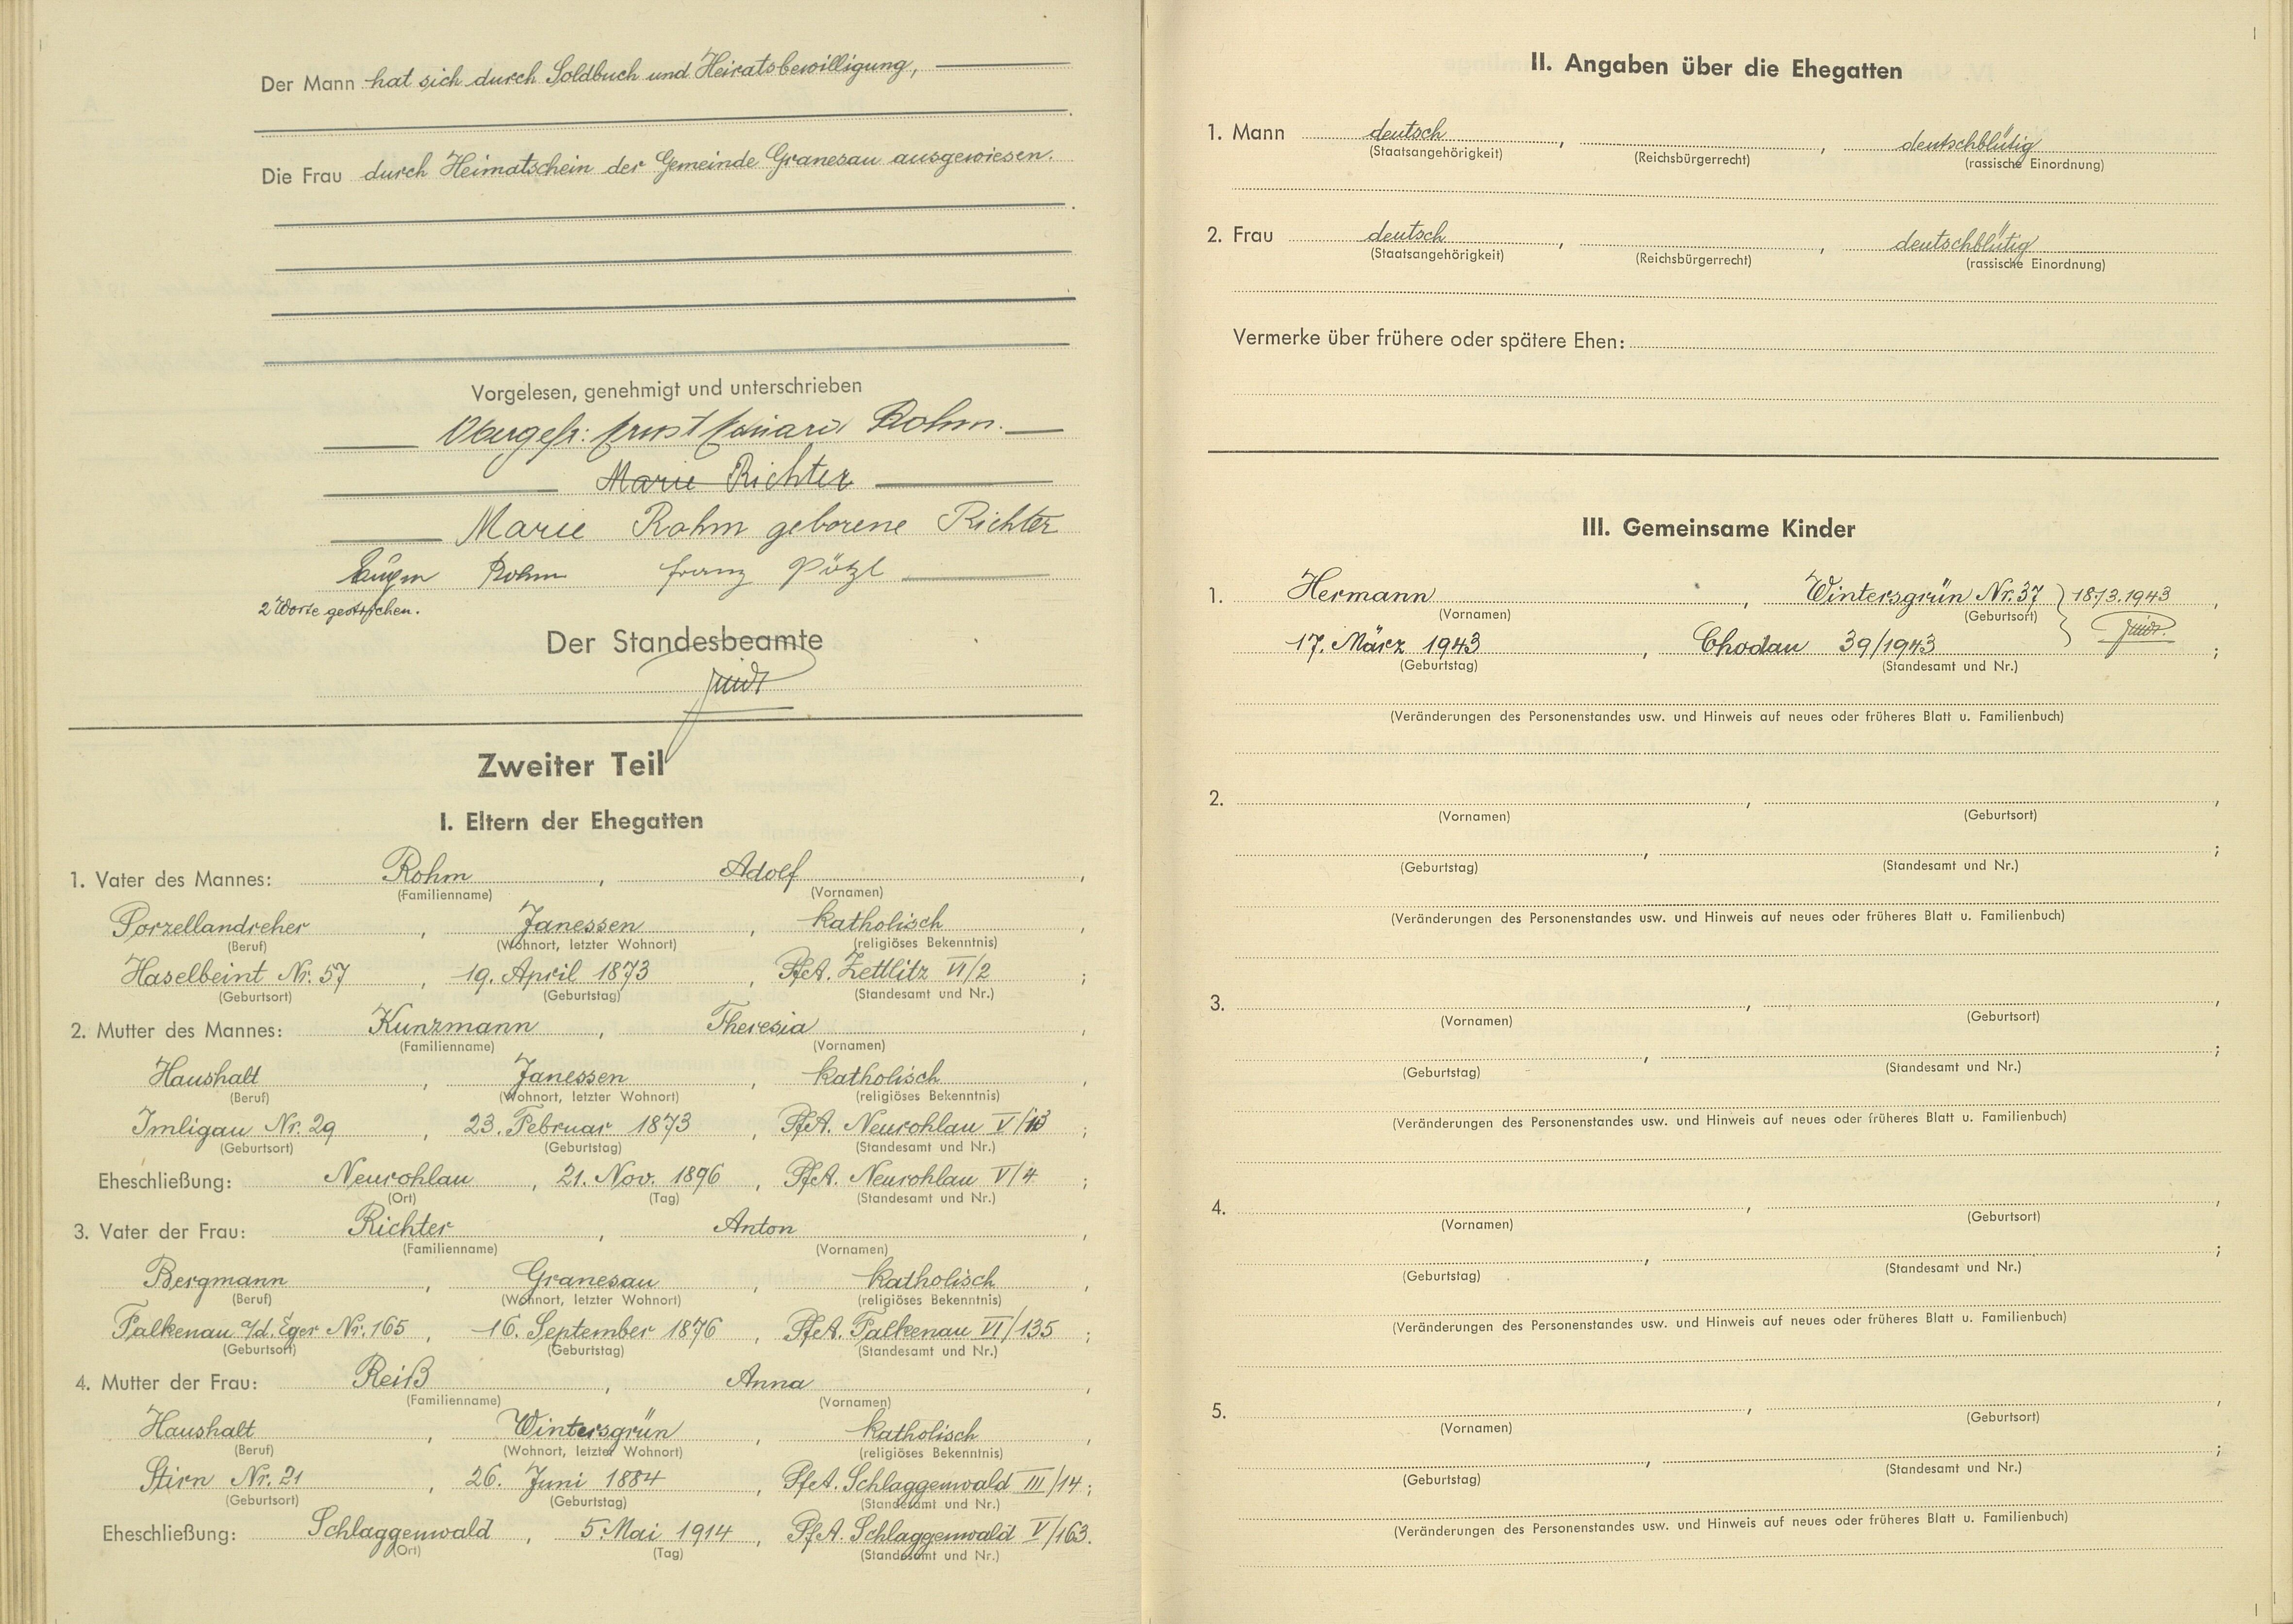 Der Mann hat sich durch Soldbuch und Heiratsbewilligung,
Die Frau durch Heimatschein der Gemeinde Granesau ausgewiesen.
Vorgelesen, genehmigt und unterschrieben
Obergefr. Ernst Eduard Rohm.
Marie Richter
Marie Rohm geborene Richter
Eugen Rohm Franz Pötzl
2 Worte gestrichen.
Der Standesbeamte
Zweiter Teil
I. Eltern der Ehegatten
1. Vater des Mannes: Rohm, Adolf,
(Familienname) (Vornamen)
Porzellandreher, Janessen, katholisch,
(Beruf) (Wohnort, letzter Wohnort) (religiöses Bekenntnis)
Haselbeint Nr. 57, 19. April 1873, PfA. Zettlitz VI/2;
(Geburtsort) (Geburtstag) (Standesamt und Nr.)
2. Mutter des Mannes: Kunzmann, Theresia,
(Familienname) (Vornamen)
Haushalt, Janessen, katholisch,
(Beruf) (Wohnort, letzter Wohnort) (religiöses Bekenntnis)
Imligau Nr. 29, 23. Februar 1873, PfA. Neurohlau V/13;
(Geburtsort) (Geburtstag) (Standesamt und Nr.)
Eheschließung: Neurohlau, 21. Nov. 1896, PfA. Neurohlau V/4;
(Ort) (Tag) (Standesamt und Nr.)
3. Vater der Frau: Richter, Anton,
(Familienname) (Vornamen)
Bergmann, Granesau, katholisch,
(Beruf) (Wohnort, letzter Wohnort) (religiöses Bekenntnis)
Falkenau a/d. Eger Nr. 165, 16. September 1876, PfA. Falkenau VI/135;
(Geburtsort) (Geburtstag) (Standesamt und Nr.)
4. Mutter der Frau: Reiß, Anna,
(Familienname) (Vornamen)
Haushalt, Wintersgrün, katholisch,
(Beruf) (Wohnort, letzter Wohnort) (religiöses Bekenntnis)
Stirn Nr. 21, 26. Juni 1884, PfA. Schlaggenwald III/14;
(Geburtsort) (Geburtstag) (Standesamt und Nr.)
Eheschließung: Schlaggenwald, 5. Mai 1914, PfA. Schlaggenwald V/163.
(Ort) (Tag) (Standesamt und Nr.)
II. Angaben über die Ehegatten
1. Mann deutsch, , deutschblütig
(Staatsangehörigkeit) (Reichsbürgerrecht) (rassische Einordnung)
2. Frau deutsch, , deutschblütig
(Staatsangehörigkeit) (Reichsbürgerrecht) (rassische Einordnung)
Vermerke über frühere oder spätere Ehen:
III. Gemeinsame Kinder
1. Hermann, Wintersgrün Nr. 37 } 18/3.1943,
(Vornamen) (Geburtsort)
17. März 1943, Chodau 39/1943;
(Geburtstag) (Standesamt und Nr.)
(Veränderungen des Personenstandes usw. und Hinweis auf neues oder früheres Blatt u. Familienbuch)
2. , ,
(Vornamen) (Geburtsort)
, ;
(Geburtstag) (Standesamt und Nr.)
(Veränderungen des Personenstandes usw. und Hinweis auf neues oder früheres Blatt u. Familienbuch)
3. , ,
(Vornamen) (Geburtsort)
, ;
(Geburtstag) (Standesamt und Nr.)
(Veränderungen des Personenstandes usw. und Hinweis auf neues oder früheres Blatt u. Familienbuch)
4. , ,
(Vornamen) (Geburtsort)
, ;
(Geburtstag) (Standesamt und Nr.)
(Veränderungen des Personenstandes usw. und Hinweis auf neues oder früheres Blatt u. Familienbuch)
5. , ,
(Vornamen) (Geburtsort)
, ;
(Geburtstag) (Standesamt und Nr.)
(Veränderungen des Personenstandes usw. und Hinweis auf neues oder früheres Blatt u. Familienbuch)